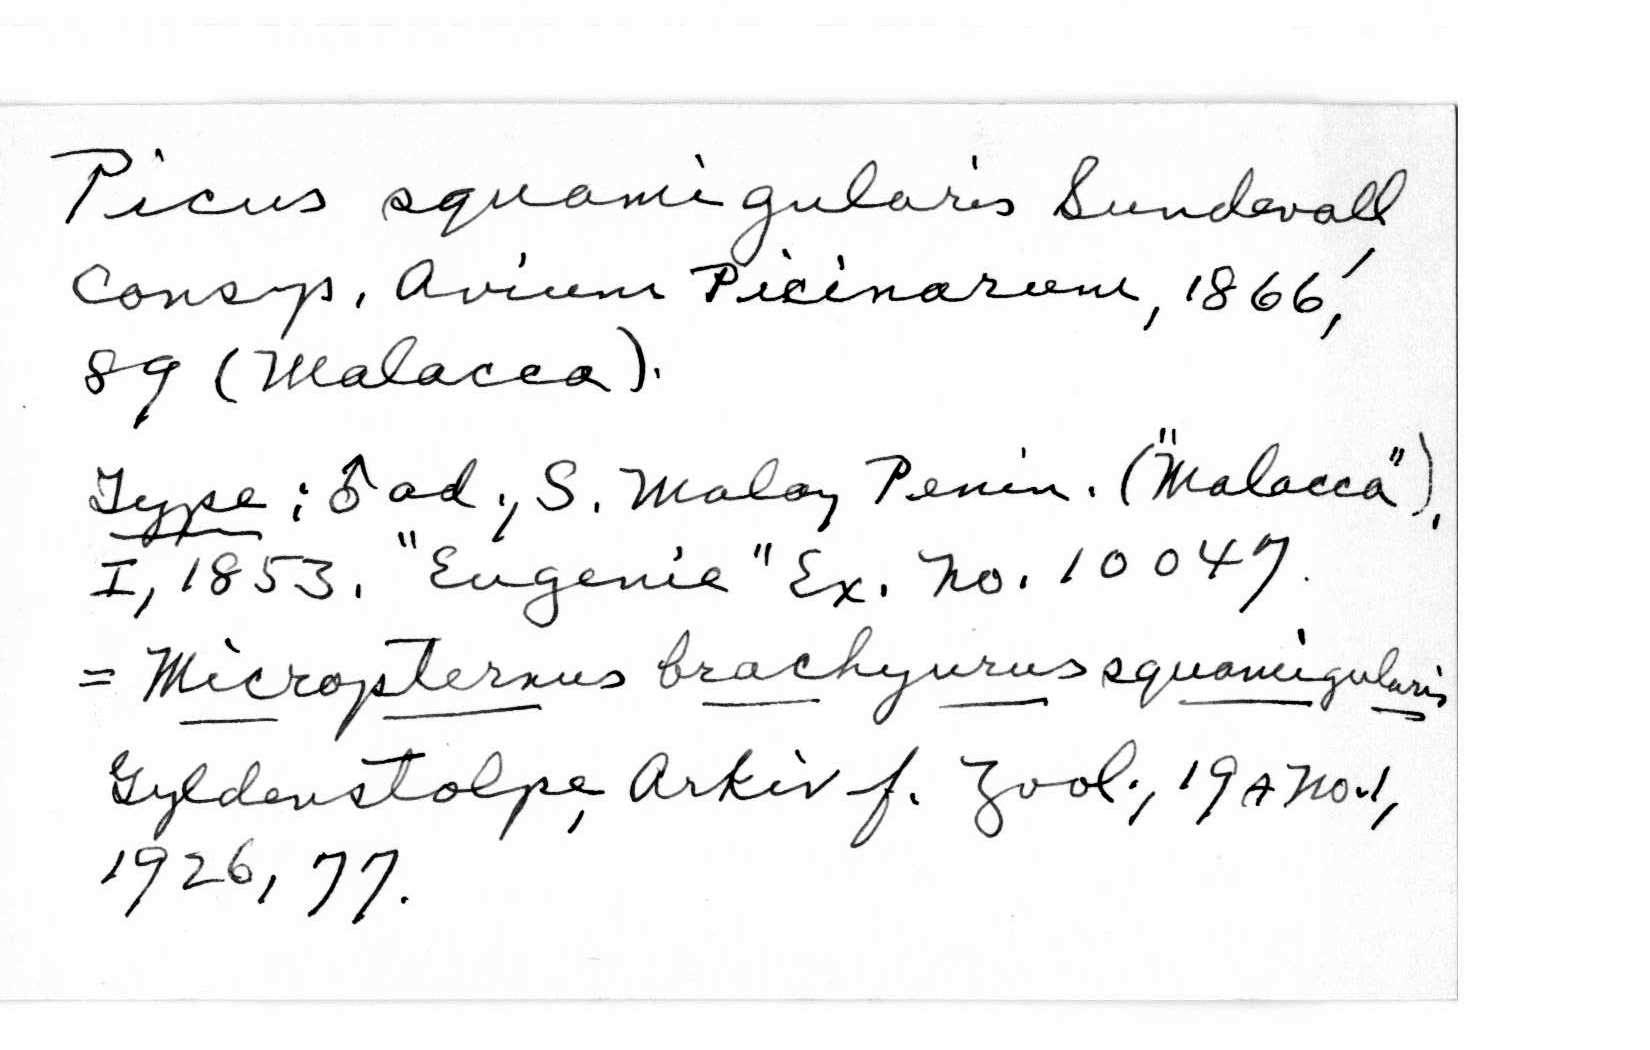 Picus squamigularis Sundevall,
Consp. Avium Picinarum, 1866,
89 (Malacca).
Type: ♂ ad., S. Malay Penin. ("Malacca"),
I, 1853. "Eugenie" Ex. No. 10047.
= Micropternus brachyurus squamigularis
Gyldenstolpe, Arkiv f. Zool., 19A No.1,
1926, 77.